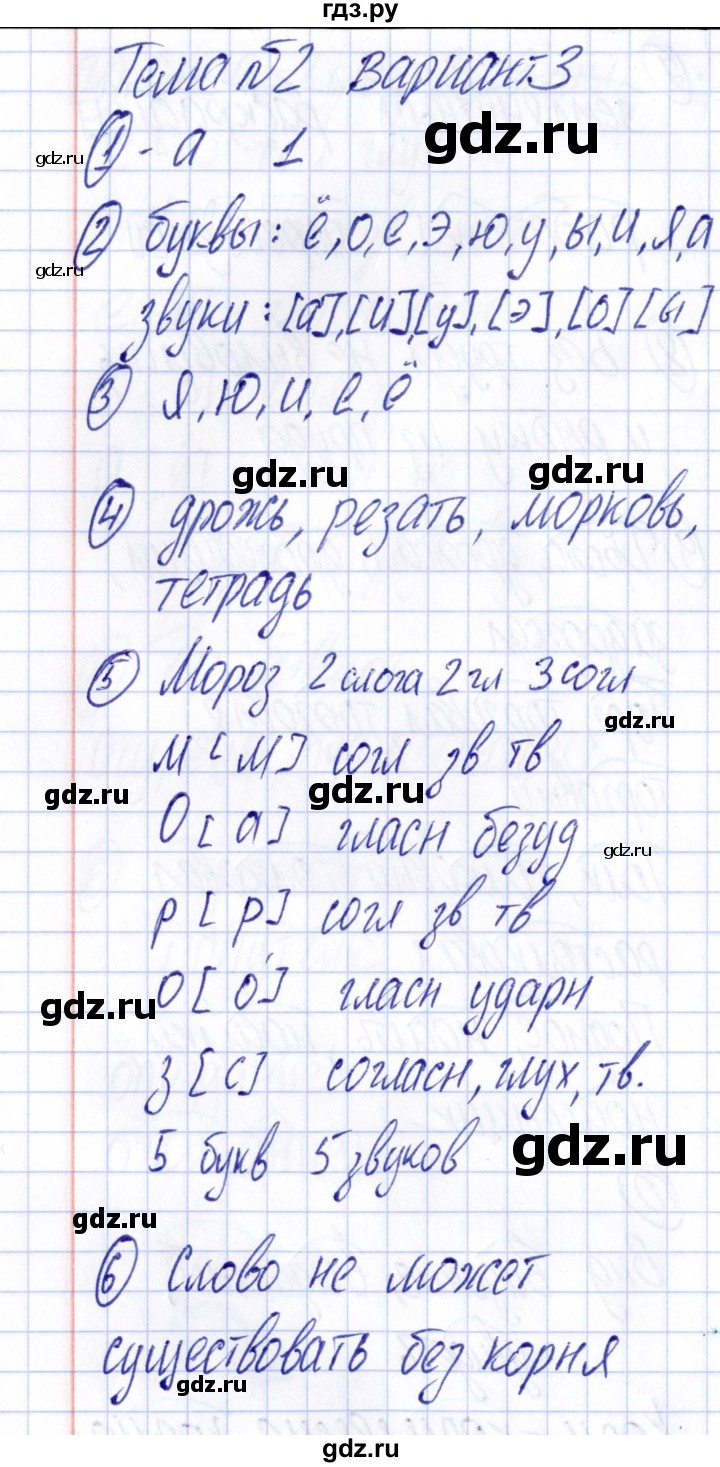 гдз.ру
Тема №2 вариант 3
gdz.ru
① - а 1
gdz.ru
② буквы: ё, о, е, э, ю, у, ы, и, я, а
gdz.ru
звуки: [а], [и], [у], [э], [о] [ы]
③ я, ю, и, е, ё
gdz.ru gdz.ru
④ дрожь, резать, морковь,
gdz.ru
тетрадь
⑤ Мороз 2 слога 2 гл 3 согл
gdz.ru
м [м] согл зв тв
gdz.ru gdz.ru
О [а] гласн безуд
gdz.ru
р [р] согл зв тв
о [о́] гласн ударн
gdz.ru
з [с] согласн, глух, тв.
5 букв 5 звуков
gdz.ru
gdz.ru
⑥ Слово не может
существовать без корня
gdz.ru
gdz.ru